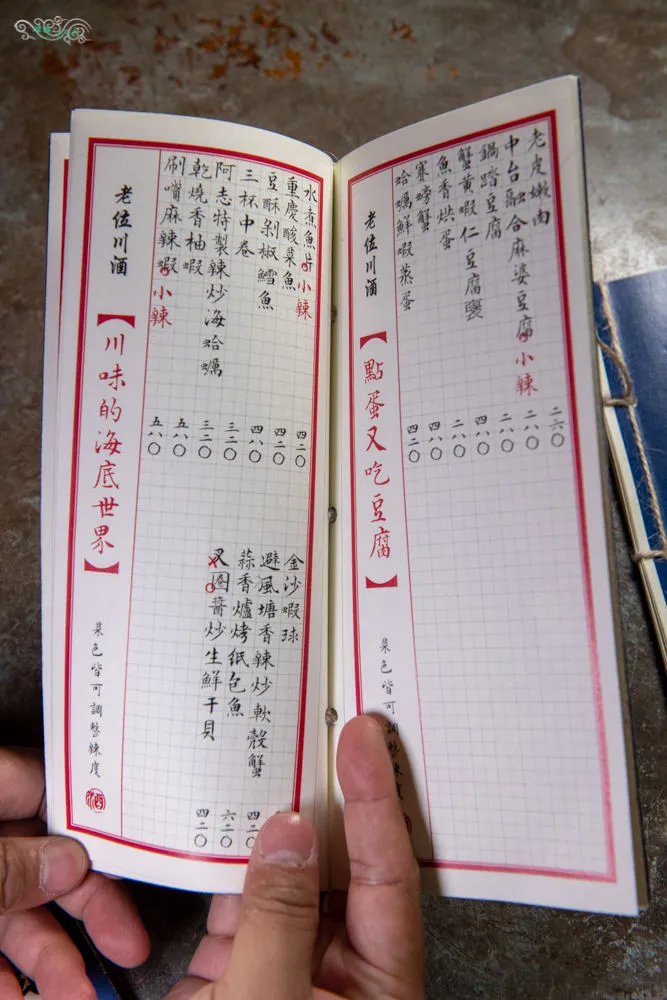 老皮嫩肉 二六〇
中台融合麻婆豆腐 小辣 二八〇
鍋踏豆腐 二八〇
蟹黃蝦仁豆腐 四八〇
魚香烘蛋 二八〇
賽螃蟹 四八〇
蛤蠣鮮蝦蒸蛋 四二〇
老位川酒
【點蛋又吃豆腐】
菜色皆可調整辣度
水煮魚片 小辣 四二〇
重慶酸菜魚 四二〇
豆酥剁椒鱈魚 四八〇
三杯中卷 三二〇
阿志特製辣炒海蛤蠣 三二〇
乾燒香柚蝦 五八〇
刷嘴麻辣蝦 小辣 五八〇
金沙蝦球
避風塘香辣炒軟殼蟹 四二〇
蒜香爐烤纸包魚 六二〇
叉圈醬炒生鮮干貝 四二〇
老位川酒
【川味的海底世界】
菜色皆可調整辣度